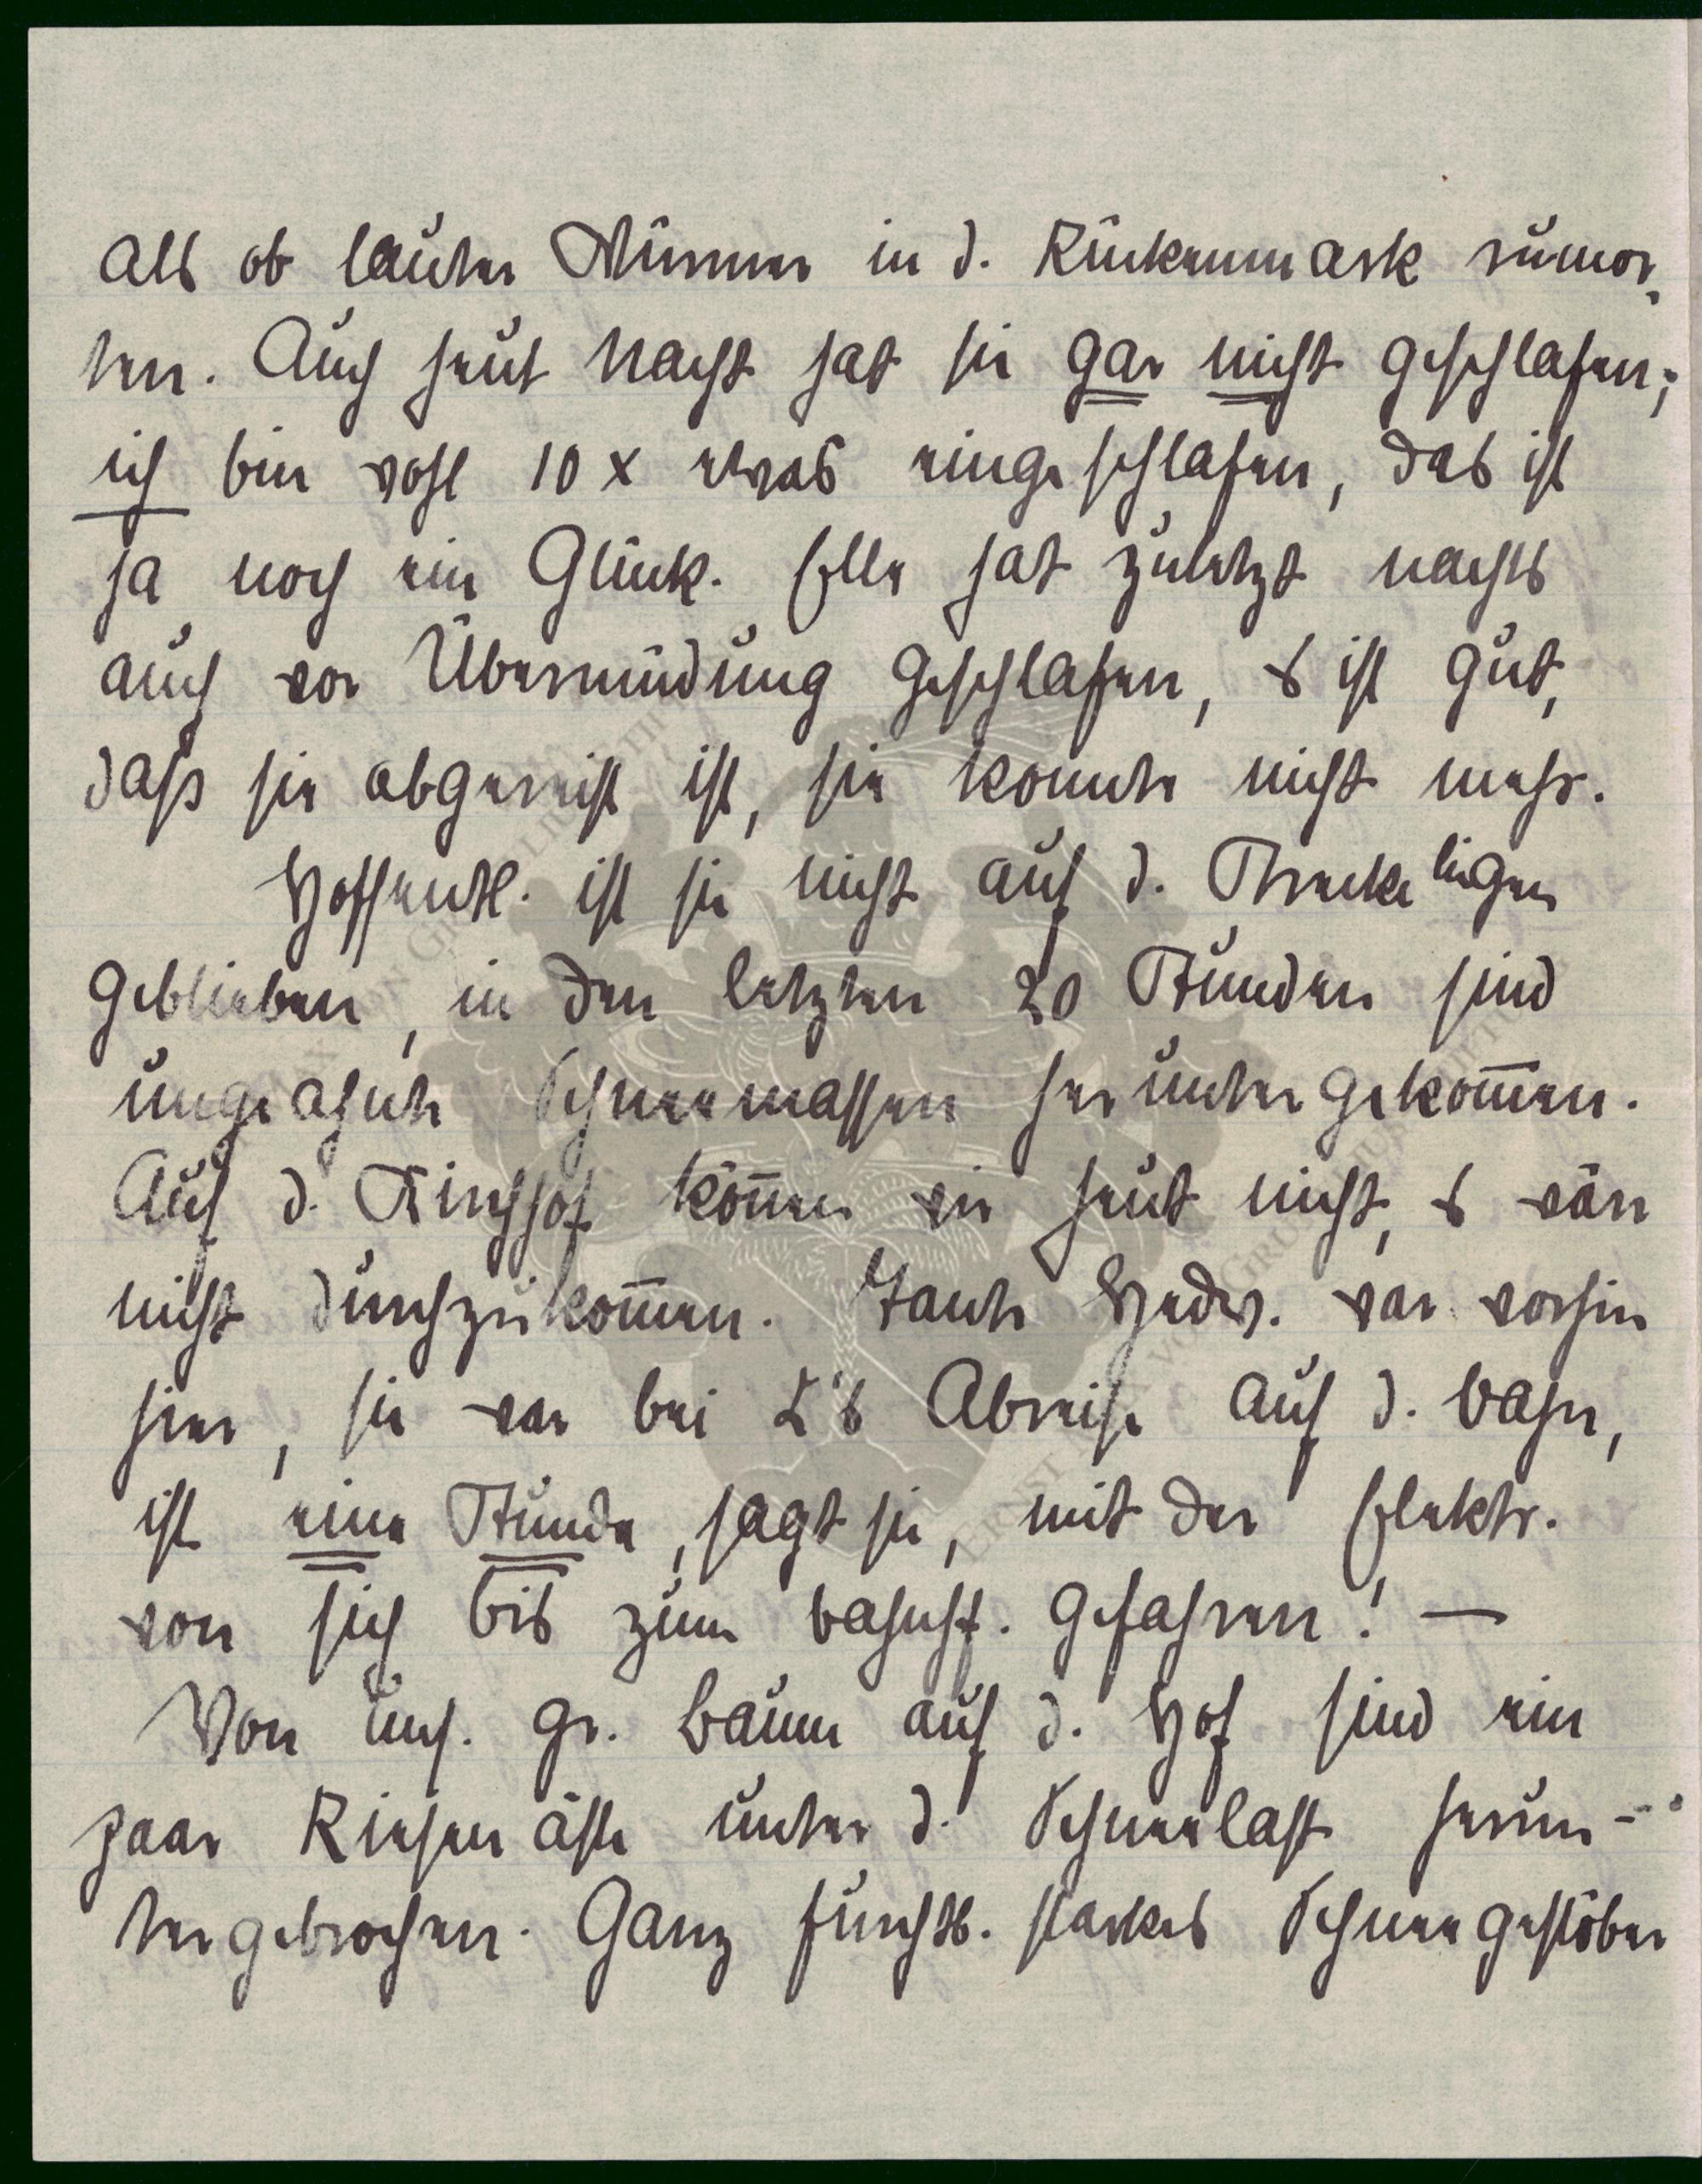 als ob lauter Würmer in d. Rückenmark rumor-
ten. Auch heut Nacht hat sie gar nicht geschlafen;
ich bin wohl 10 x etwas eingeschlafen, das ist
ja noch ein Glück. Elle hat zuletzt nachts
auch vor Übermüdung geschlafen, es ist gut,
daß sie abgereist ist, sie konnte nicht mehr.
Hoffentl. ist sie nicht auf d. Strecke liegen
geblieben, in den letzten 20 Stunden sind
ungeahnte Schneemassen heruntergekom̅en.
Auf d. Kirchhof kön̅en wir heut nicht, es wär
nicht durchzukom̅en. Tante Hedw. war vorhin
hier, sie war bei L's Abreise auf d. Bahn,
ist eine Stunde, sagt sie, mit der Elektr.
von sich bis zum Bahnhf. gefahren! —
Von uns. gr. Baum auf d. Hof sind ein
paar Riesenäste unter d. Schneelast herun-
tergebrochen. Ganz furchtb. starkes Schneegestöber